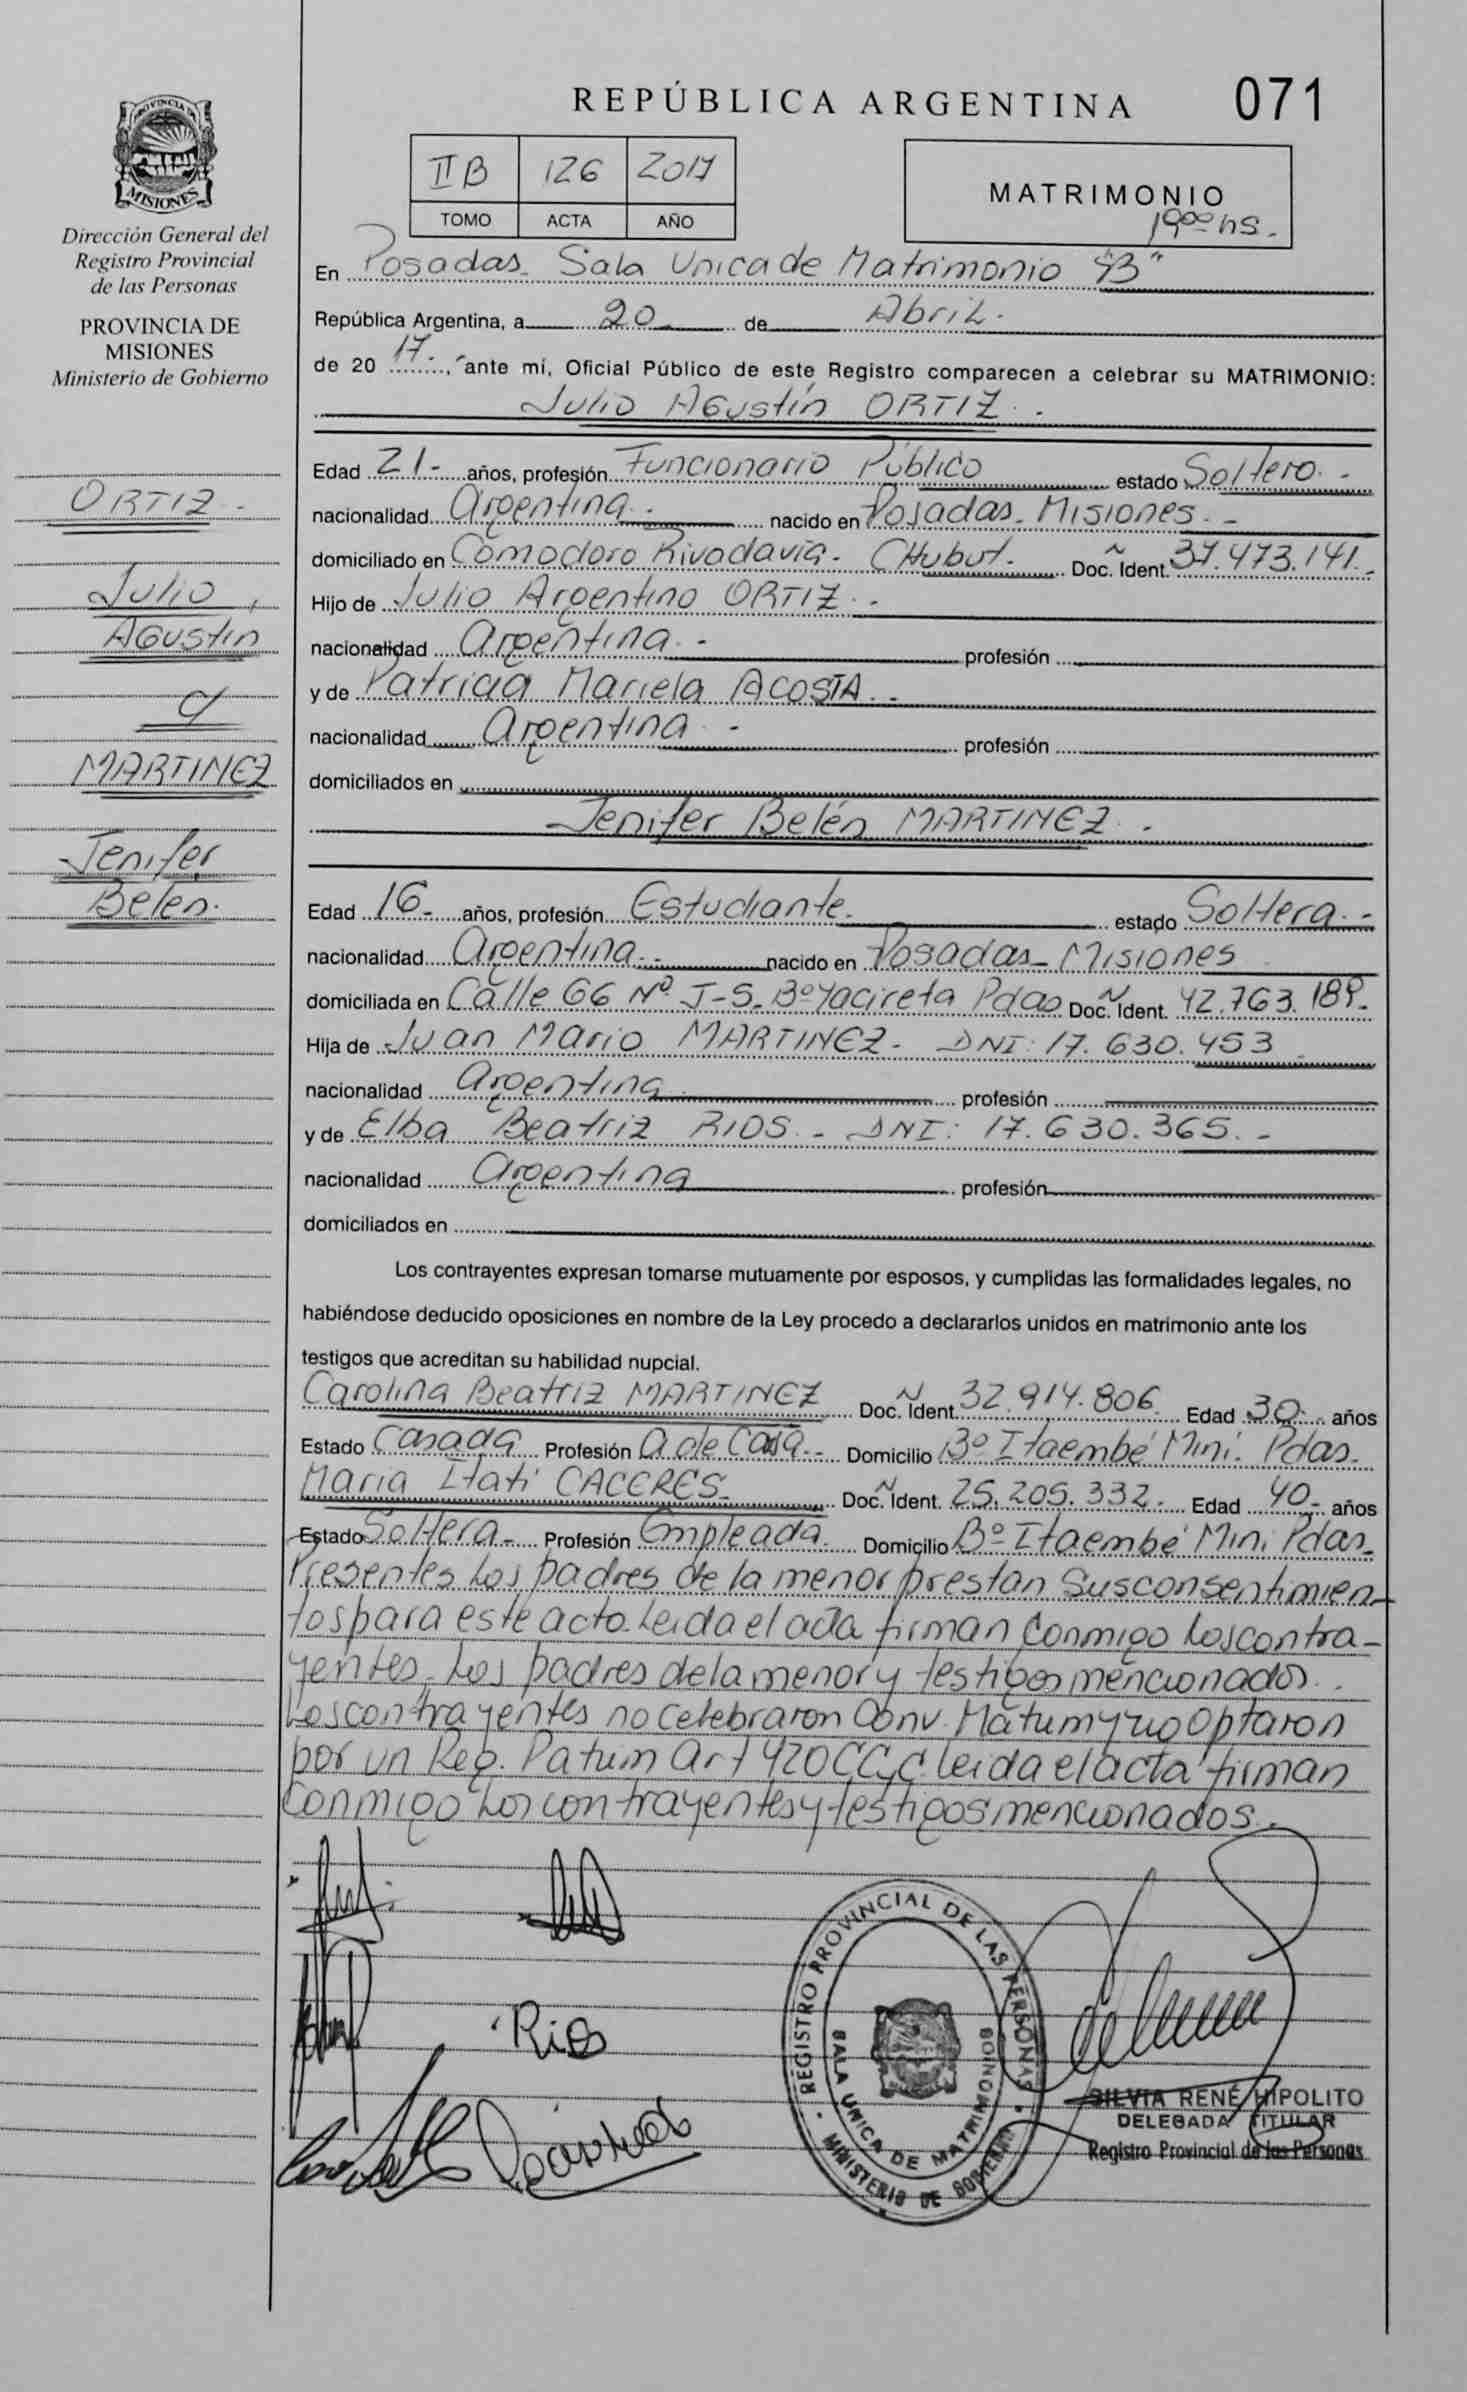 REPÚBLICA ARGENTINA
071
PROVINCIA DE
MISIONES
Dirección General del
Registro Provincial
de las Personas
PROVINCIA DE
MISIONES
Ministerio de Gobierno
ORTIZ.-
Julio,
Agustín
c/
MARTINEZ
Jenifer
Belén.
II B 126 2017
TOMO ACTA AÑO
MATRIMONIO
19⁰⁰ hs.
En Posadas. Sala Unica de Matrimonio "B"
República Argentina, a 20 de Abril.
de 20 17., ante mí, Oficial Público de este Registro comparecen a celebrar su MATRIMONIO:
Julio Agustín ORTIZ.
Edad 21.- años, profesión Funcionario Público estado Soltero.-
nacionalidad Argentina.- nacido en Posadas. Misiones.-
domiciliado en Comodoro Rivadavia. CHubut. Doc. Ident. 37.473.141.-
Hijo de Julio Argentino ORTIZ.-
nacionalidad Argentina.- profesión
y de Patricia Mariela ACOSTA.-
nacionalidad Argentina.- profesión
domiciliados en
Jenifer Belén MARTINEZ.-
Edad 16- años, profesión Estudiante. estado Soltera.-
nacionalidad Argentina.- nacido en Posadas- Misiones
domiciliada en Calle 66 Nº J-5. Bº Yacireta Pdas Doc. Ident. 42.763.189.-
Hija de Juan Mario MARTINEZ- DNI: 17.630.453
nacionalidad Argentina profesión
y de Elba Beatriz RIOS.- DNI: 17.630.365.-
nacionalidad Argentina profesión
domiciliados en
Los contrayentes expresan tomarse mutuamente por esposos, y cumplidas las formalidades legales, no
habiéndose deducido oposiciones en nombre de la Ley procedo a declararlos unidos en matrimonio ante los
testigos que acreditan su habilidad nupcial.
Carolina Beatriz MARTINEZ Doc. Ident. 32.914.806. Edad 30- años
Estado Casada Profesión A de Casa.- Domicilio Bº Itaembé Mini. Pdas.
Maria Itatí CACERES- Doc. Ident. 25.205.332.- Edad 40- años
Estado Soltera- Profesión Empleada. Domicilio Bº Itaembé Mini Pdas-
Presentes Los padres de la menor prestan Sus consentimien-
tos para este acto. Leida el acta firman Conmigo Los contra-
yentes, Los padres de la menor y testigos mencionados.
Los contrayentes no celebraron Conv. Matrim y no Optaron
por un Reg. Patrim Art 420 CCyC leida el acta firman
Conmigo Los contrayentes y testigos mencionados.
Rios
REGISTRO PROVINCIAL DE LAS PERSONAS
SALA UNICA DE MATRIMONIOS
MINISTERIO DE GOBIERNO
SILVIA RENÉ HIPOLITO
DELEGADA TITULAR
Registro Provincial de las Personas